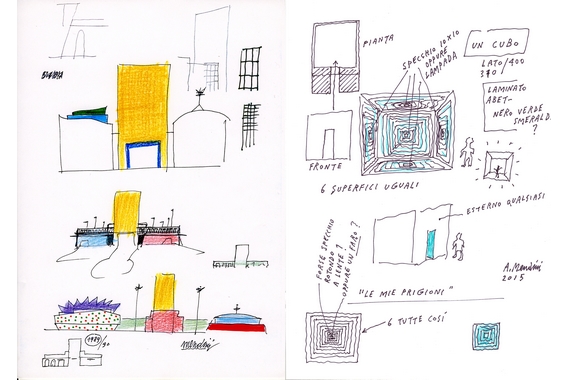 1989/90
Mendini
PIANTA
SPECCHIO 10X10
OPPURE
LAMPADA
UN CUBO
LATO/400
370/
LAMINATO
ABET-
NERO VERDE
SMERALD.
?
FRONTE
6 SUPERFICI UGUALI
ESTERNO QUALSIASI
FORSE SPECCHIO
ROTONDO ?
A LENTE ?
OPPURE UN FARO ?
A. Mendini
2015
"LE MIE PRIGIONI"
6 TUTTE COSÍ